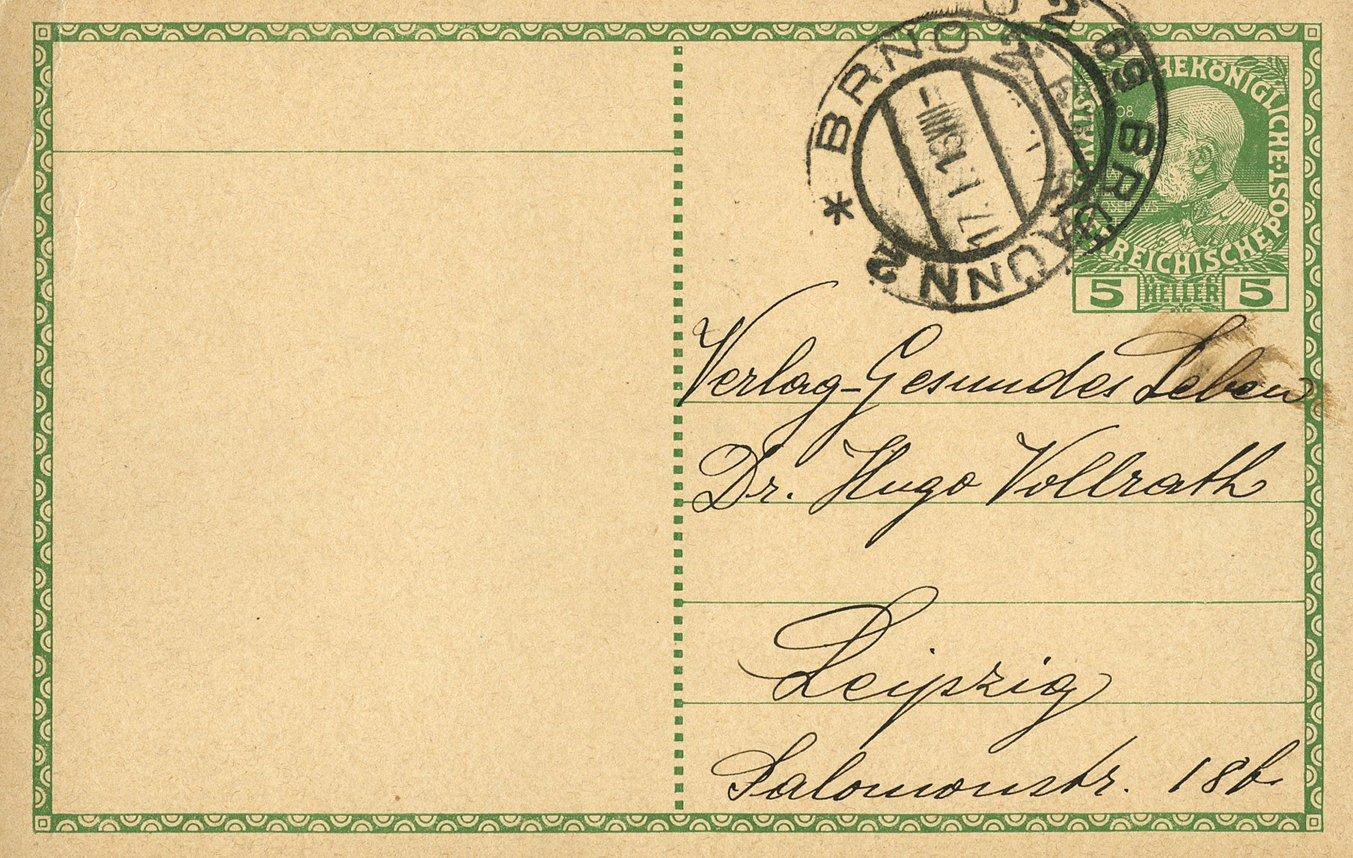 * BRNO 2
BRÜNN 2
KAISERLICHEKÖNIGLICHE·POST
ÖSTERREICHISCHE
5 HELLER 5
Verlag-Gesundes Leben
Dr. Hugo Vollrath
Leipzig
Salomonstr. 18b